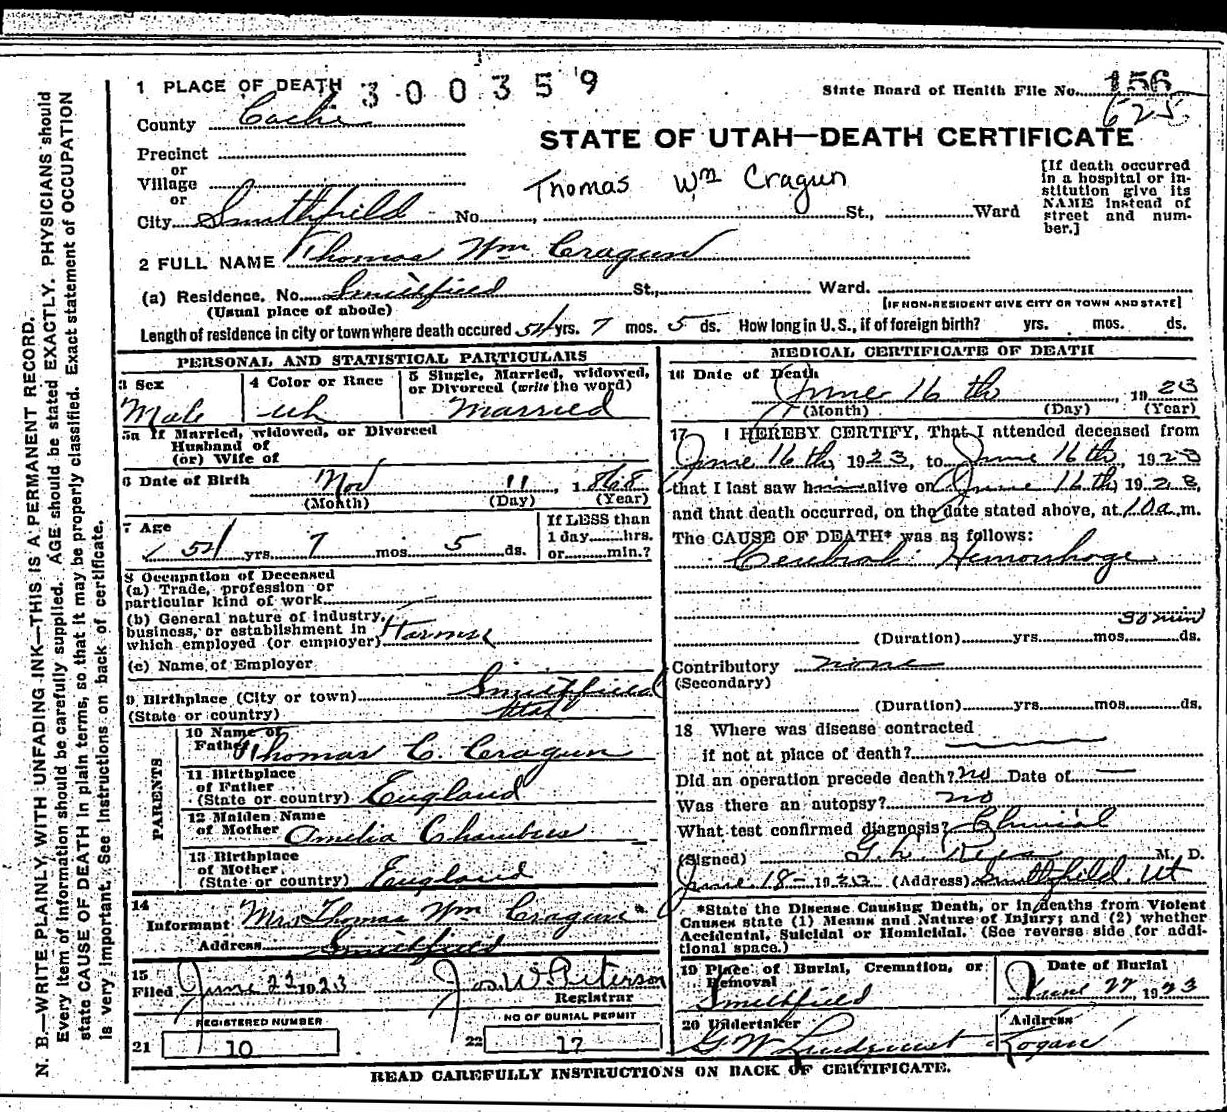 1 PLACE OF DEATH 300359
State Board of Health File No. 156
625
County Cache
STATE OF UTAH—DEATH CERTIFICATE
Precinct
or
Village
or
City Smithfield No. St., Ward
Thomas Wm Cragun
[If death occurred in a hospital or in-
stitution give its
NAME instead of
street and num-
ber.]
2 FULL NAME Thomas Wm Cragun
(a) Residence. No. Smithfield St., Ward.
(Usual place of abode) [IF NON-RESIDENT GIVE CITY OR TOWN AND STATE]
Length of residence in city or town where death occured 54 yrs. 7 mos. 5 ds. How long in U.S., if of foreign birth? yrs. mos. ds.
PERSONAL AND STATISTICAL PARTICULARS
3 Sex
Male
4 Color or Race
wh
5 Single, Married, widowed,
or Divorced (write the word)
Married
5a If Married, widowed, or Divorced
Husband of
(or) Wife of
6 Date of Birth Nov 11, 1868
(Month) (Day) (Year)
7 Age
54 yrs. 7 mos. 5 ds.
If LESS than
1 day......hrs.
or......min.?
8 Occupation of Deceased
(a) Trade, profession or
particular kind of work
(b) General nature of industry,
business, or establishment in
which employed (or employer) Farmer
(c) Name of Employer
9 Birthplace (City or town) Smithfield
(State or country) Utah
PARENTS
10 Name of
Father Thomas C. Cragun
11 Birthplace
of Father
(State or country) England
12 Maiden Name
of Mother Amelia Chambers
13 Birthplace
of Mother
(State or country) England
14
Informant Mrs Thomas Wm Cragun
Address Smithfield
15
Filed June 22 1923 Jos. W. Peterson
Registrar
REGISTERED NUMBER
21 10
NO OF BURIAL PERMIT
22 17
MEDICAL CERTIFICATE OF DEATH
16 Date of Death
June 16th, 1923
(Month) (Day) (Year)
17 I HEREBY CERTIFY, That I attended deceased from
June 16th, 1923, to June 16th, 1923
that I last saw him alive on June 16th, 1923,
and that death occurred, on the date stated above, at 10 a.m.
The CAUSE OF DEATH* was as follows:
Cerebral Hemorrhage
30 min
(Duration) yrs. mos. ds.
Contributory none
(Secondary)
(Duration) yrs. mos. ds.
18 Where was disease contracted
if not at place of death?
Did an operation precede death? no Date of —
Was there an autopsy? no
What test confirmed diagnosis? Clinical
(Signed) G. L. Rees M. D.
June 18- 1923 (Address) Smithfield Ut
*State the Disease Causing Death, or in deaths from Violent
Causes state (1) Means and Nature of Injury; and (2) whether
Accidental, Suicidal or Homicidal. (See reverse side for addi-
tional space.)
19 Place of Burial, Cremation, or
Removal
Smithfield
Date of Burial
June 22, 1923
20 Undertaker
G W Lundquist
Address
Logan
READ CAREFULLY INSTRUCTIONS ON BACK OF CERTIFICATE.
N. B.—WRITE PLAINLY, WITH UNFADING INK—THIS IS A PERMANENT RECORD.
Every item of information should be carefully supplied. AGE should be stated EXACTLY. PHYSICIANS should
state CAUSE OF DEATH in plain terms, so that it may be properly classified. Exact statement of OCCUPATION
is very important. See instructions on back of certificate.